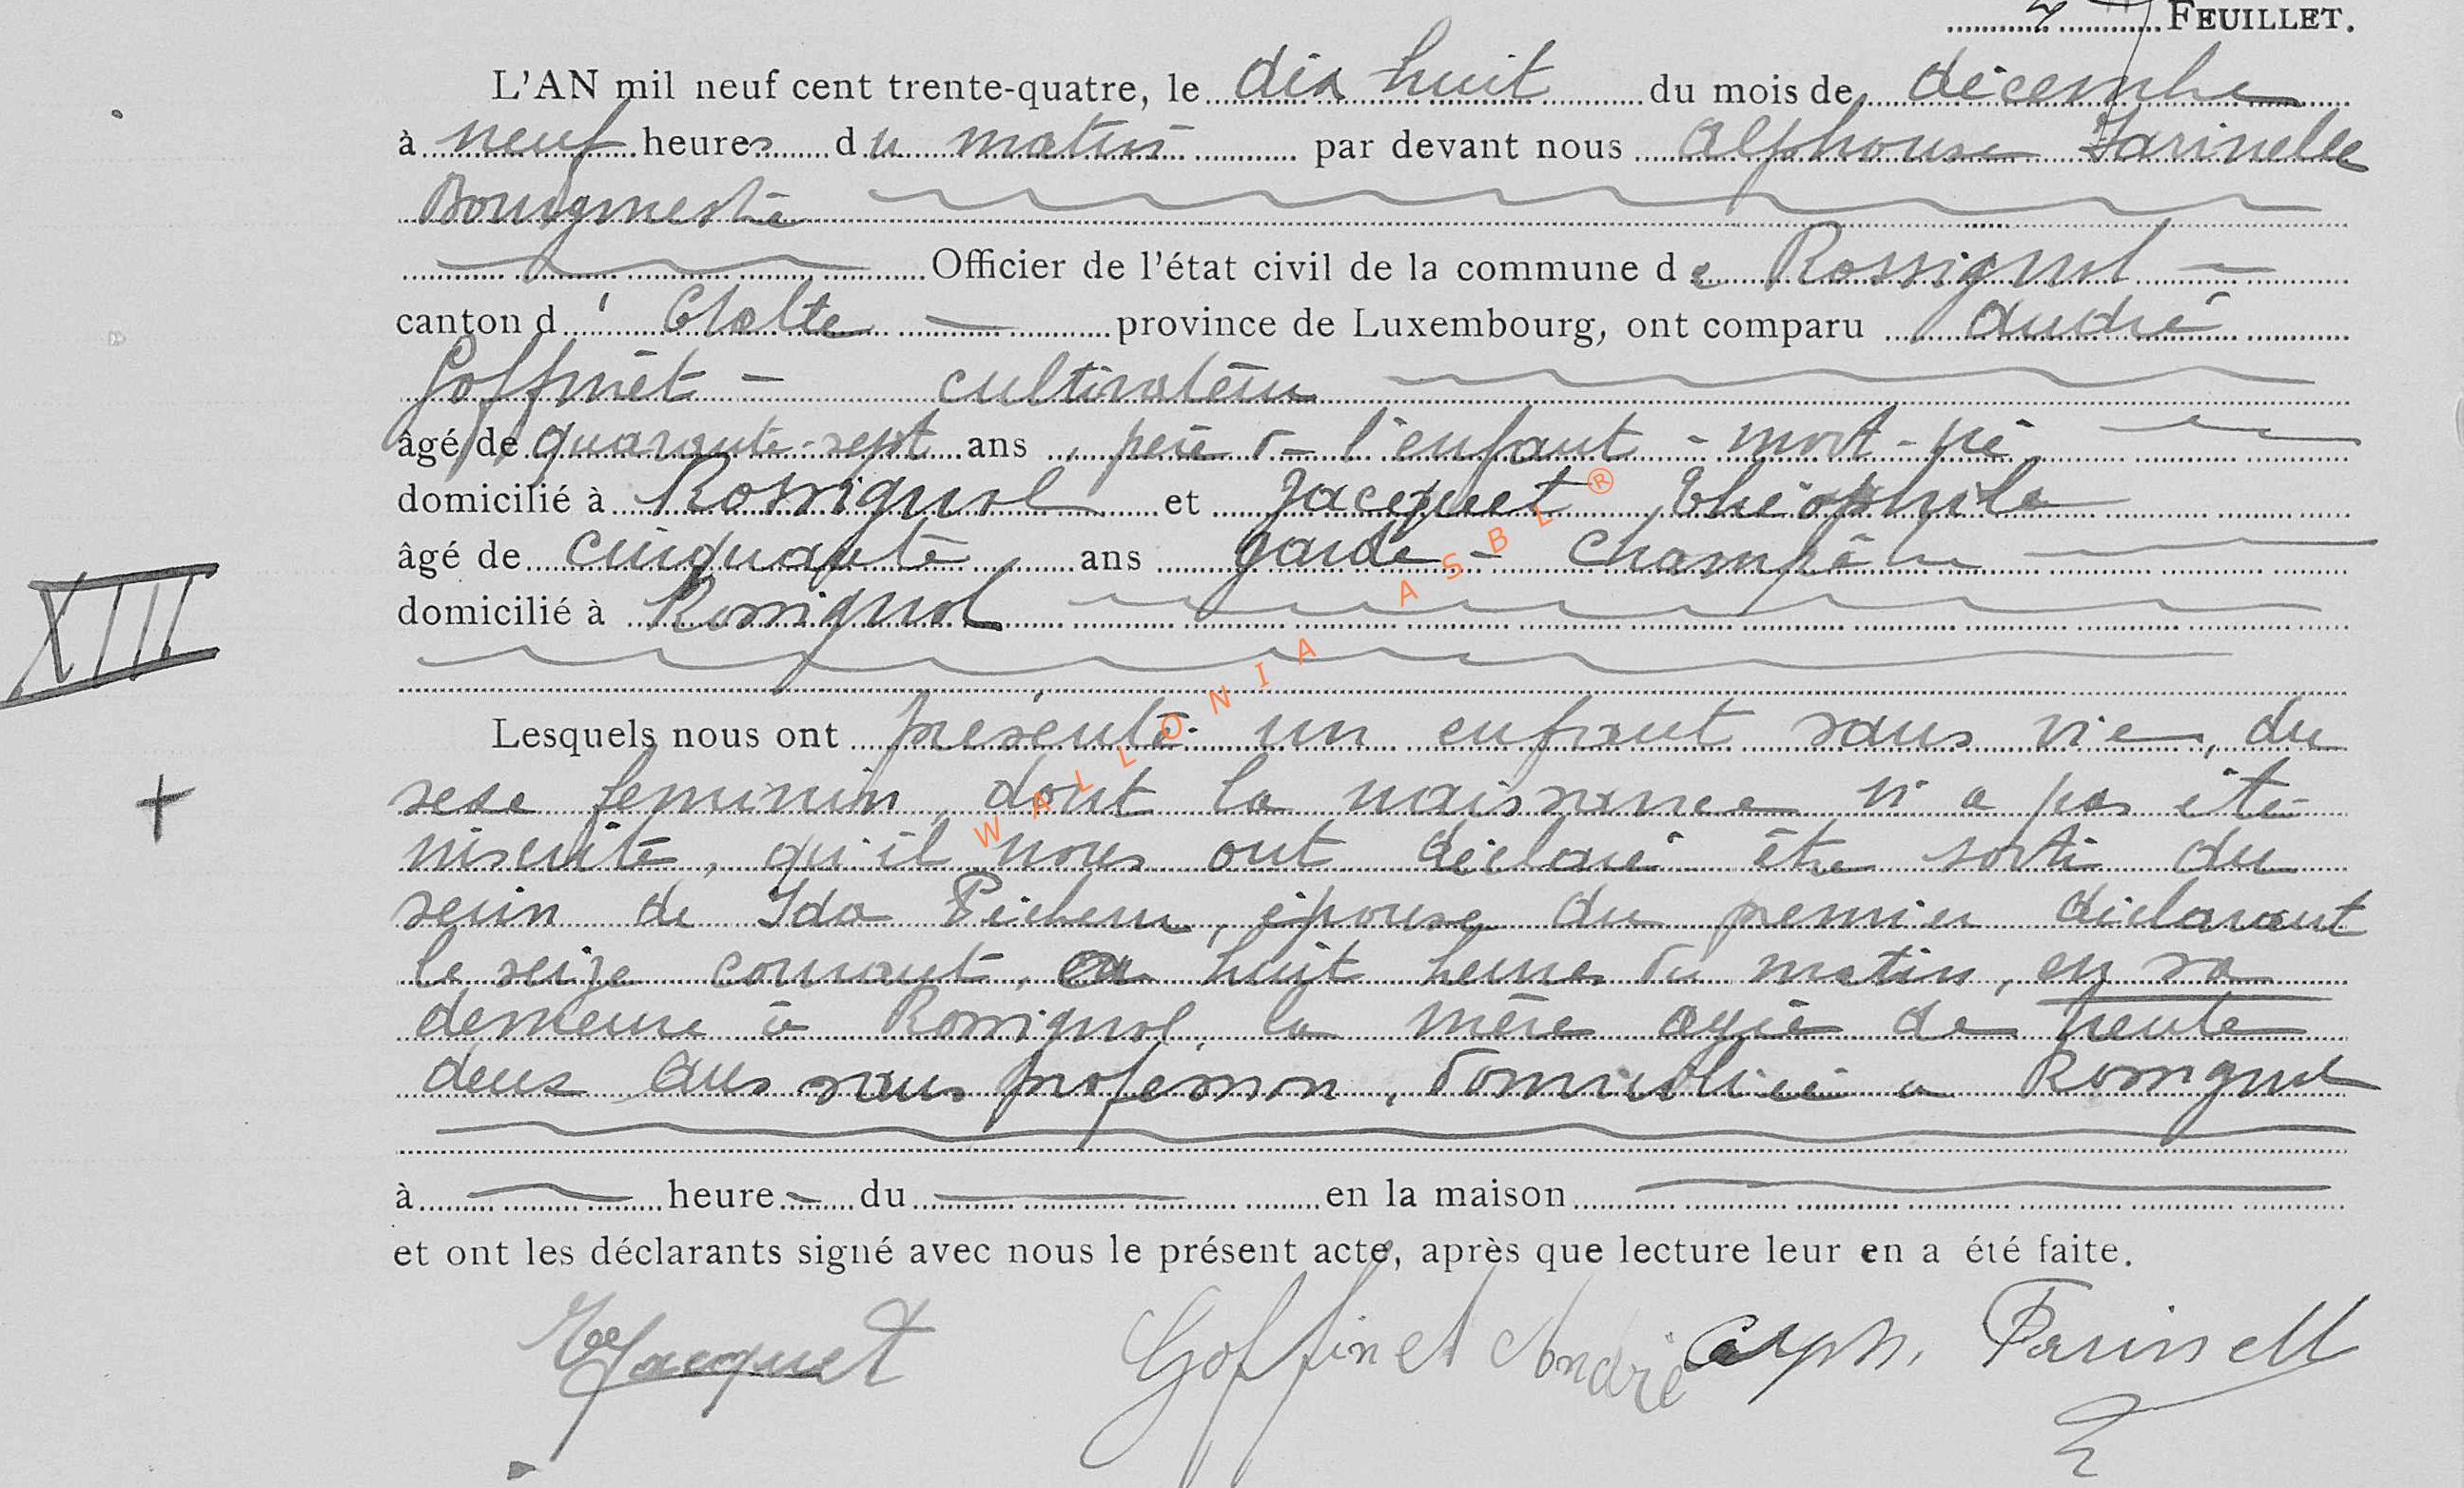 FEUILLET.
L'AN mil neuf cent trente-quatre, le dix huit du mois de décembre
à neuf heures du matin par devant nous Alphonse Farinelle
Bourgmestre
Officier de l'état civil de la commune de Rossignol
canton d'Etalle province de Luxembourg, ont comparu André
Goffinet - cultivateur
âgé de quarante-sept ans, père de l'enfant - mort-né
domicilié à Rossignol et Jacquet Théophile
âgé de cinquante ans garde - champêtre
domicilié à Rossignol
XIII
Lesquels nous ont présenté un enfant sans vie, du
sexe feminin, dont la naissance n'a pas été
inscrite, qu'il nous ont déclaré être sorti du
sein de Ida, épouse du premier déclarant
le seize courant, à huit heures du matin, en sa
demeure à Rossignol, la mère agée de trente
deux ans sans profession, domiciliée a Rossignol
+
à heure du en la maison
et ont les déclarants signé avec nous le présent acte, après que lecture leur en a été faite.
Jacquet Goffinet André Alph. Farinell
WALLONIA ASBL ®